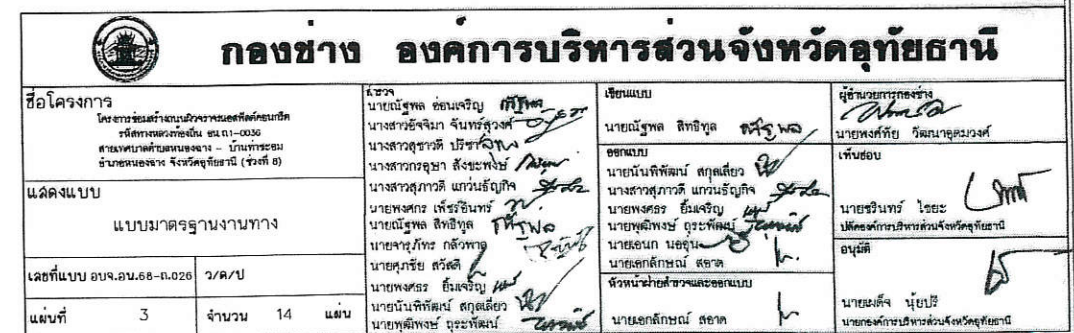 กองช่าง องค์การบริหารส่วนจังหวัดอุทัยธานี
ชื่อโครงการ
โครงการซ่อมสร้างถนนผิวจราจรแอสฟัลต์คอนกรีต
รหัสทางหลวงท้องถิ่น อน.ถ1-0036
สายเทศบาลตำบลหนองฉาง - บ้านท่าชะอม
อำเภอหนองฉาง จังหวัดอุทัยธานี (ช่วงที่ 8)
แสดงแบบ
แบบมาตรฐานงานทาง
เลขที่แบบ อบจ.อน.68-ถ.026 ว/ด/ป
แผ่นที่ 3 จำนวน 14 แผ่น
สำรวจ
นายณัฐพล อ่อนเจริญ
นางสาวอัจจิมา จันทร์สุวงศ์
นางสาวสุชาวดี
นางสาวกรอุษา สังขะพงษ์
นางสาวสุภาวดี แกว่นธัญกิจ
นายพงศกร เพ็ชร์อินทร์
นายณัฐพล สิทธิทูล
นายจารุภัทร กล้วพาด
นายศุภชัย สวัสดิ์
นายพงศธร ยิ้มเจริญ
นายนันพิพัฒน์ สกุลเลี่ยว
นายพุฒิพงษ์ ถุระพัฒน์
เขียนแบบ
นายณัฐพล สิทธิทูล
ออกแบบ
นายนันพิพัฒน์ สกุลเลี่ยว
นางสาวสุภาวดี แกว่นธัญกิจ
นายพงศธร ยิ้มเจริญ
นายพุฒิพงษ์ ถุระพัฒน์
นายเอนก นออุ่น
นายเอกลักษณ์ สอาด
หัวหน้าฝ่ายสำรวจและออกแบบ
นายเอกลักษณ์ สอาด
ผู้อำนวยการกองช่าง
นายพงศ์ทัย วัฒนาอุดมวงศ์
เห็นชอบ
นายชรินทร์ ไชยะ
ปลัดองค์การบริหารส่วนจังหวัดอุทัยธานี
อนุมัติ
นายเผด็จ นุ้ยปรี
นายกองค์การบริหารส่วนจังหวัดอุทัยธานี